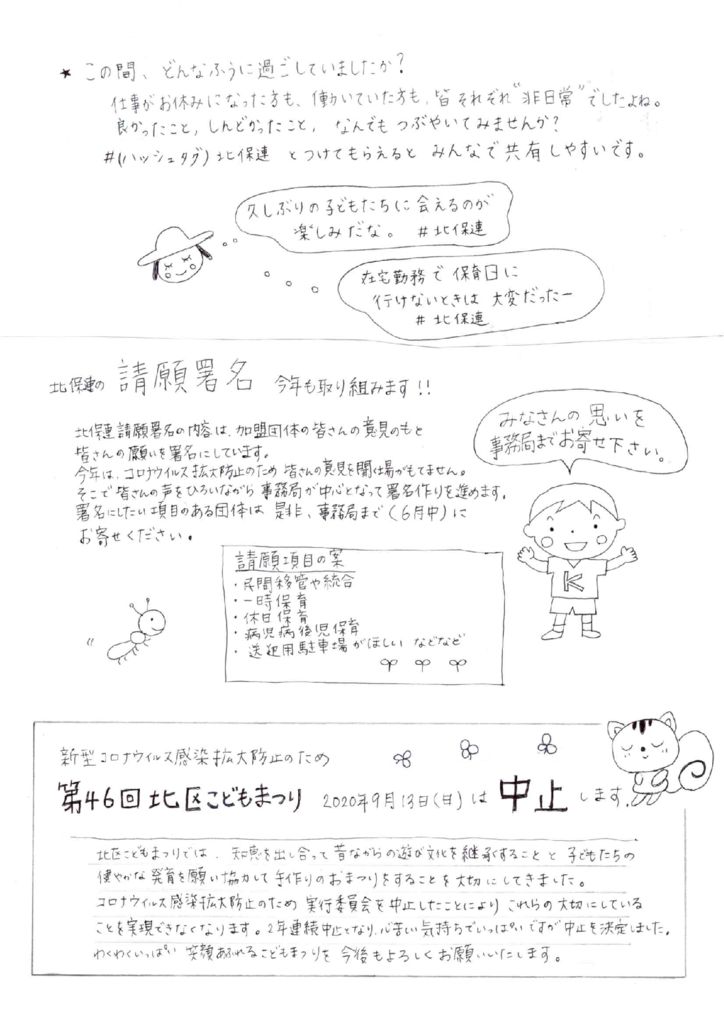 ★ この間、どんなふうに過ごしていましたか？
仕事がお休みになった方も、働いていた方も、皆それぞれ"非日常"でしたよね。
良かったこと，しんどかったこと， なんでも つぶやいてみませんか？
#(ハッシュタグ) 北保連 とつけてもらえると みんなで 共有 しやすいです。
久しぶりの子どもたちに 会えるのが
楽しみだな。 #北保連
在宅勤務で 保育日に
行けないときは 大変だったー
# 北保連
北保連の 請願署名 今年も取り組みます!!
みなさんの 思いを
事務局までお寄せ下さい。
北保連請願署名の内容は、加盟団体の皆さんの意見のもと
皆さんの願いを署名にしています。
今年は、コロナウイルス拡大防止のため 皆さんの意見を聞く場がもてません。
そこで皆さんの声をひろいながら 事務局が中心となって署名作りを進めます。
署名にしたい項目のある団体は 是非、事務局まで(6月中)に
お寄せください。
請願項目の案
・民間移管や統合
・一時保育
・休日保育
・病児病後児保育
・送迎用駐車場がほしい などなど
K
新型コロナウイルス感染拡大防止のため
第46回 北区こどもまつり 2020年9月13日(日)は 中止 します。
北区こどもまつりでは、知恵を出し合って 昔ながらの遊び文化を継承すること と 子どもたちの
健やかな発育を願い協力して手作りのおまつりをすることを大切にしてきました。
コロナウイルス感染拡大防止のため 実行委員会を中止したことにより これらの大切にしている
ことを実現できなくなります。2年連続中止となり、心苦しい気持ちでいっぱいですが中止を決定しました。
わくわくいっぱい 笑顔あふれるこどもまつりを 今後もよろしくお願いいたします。